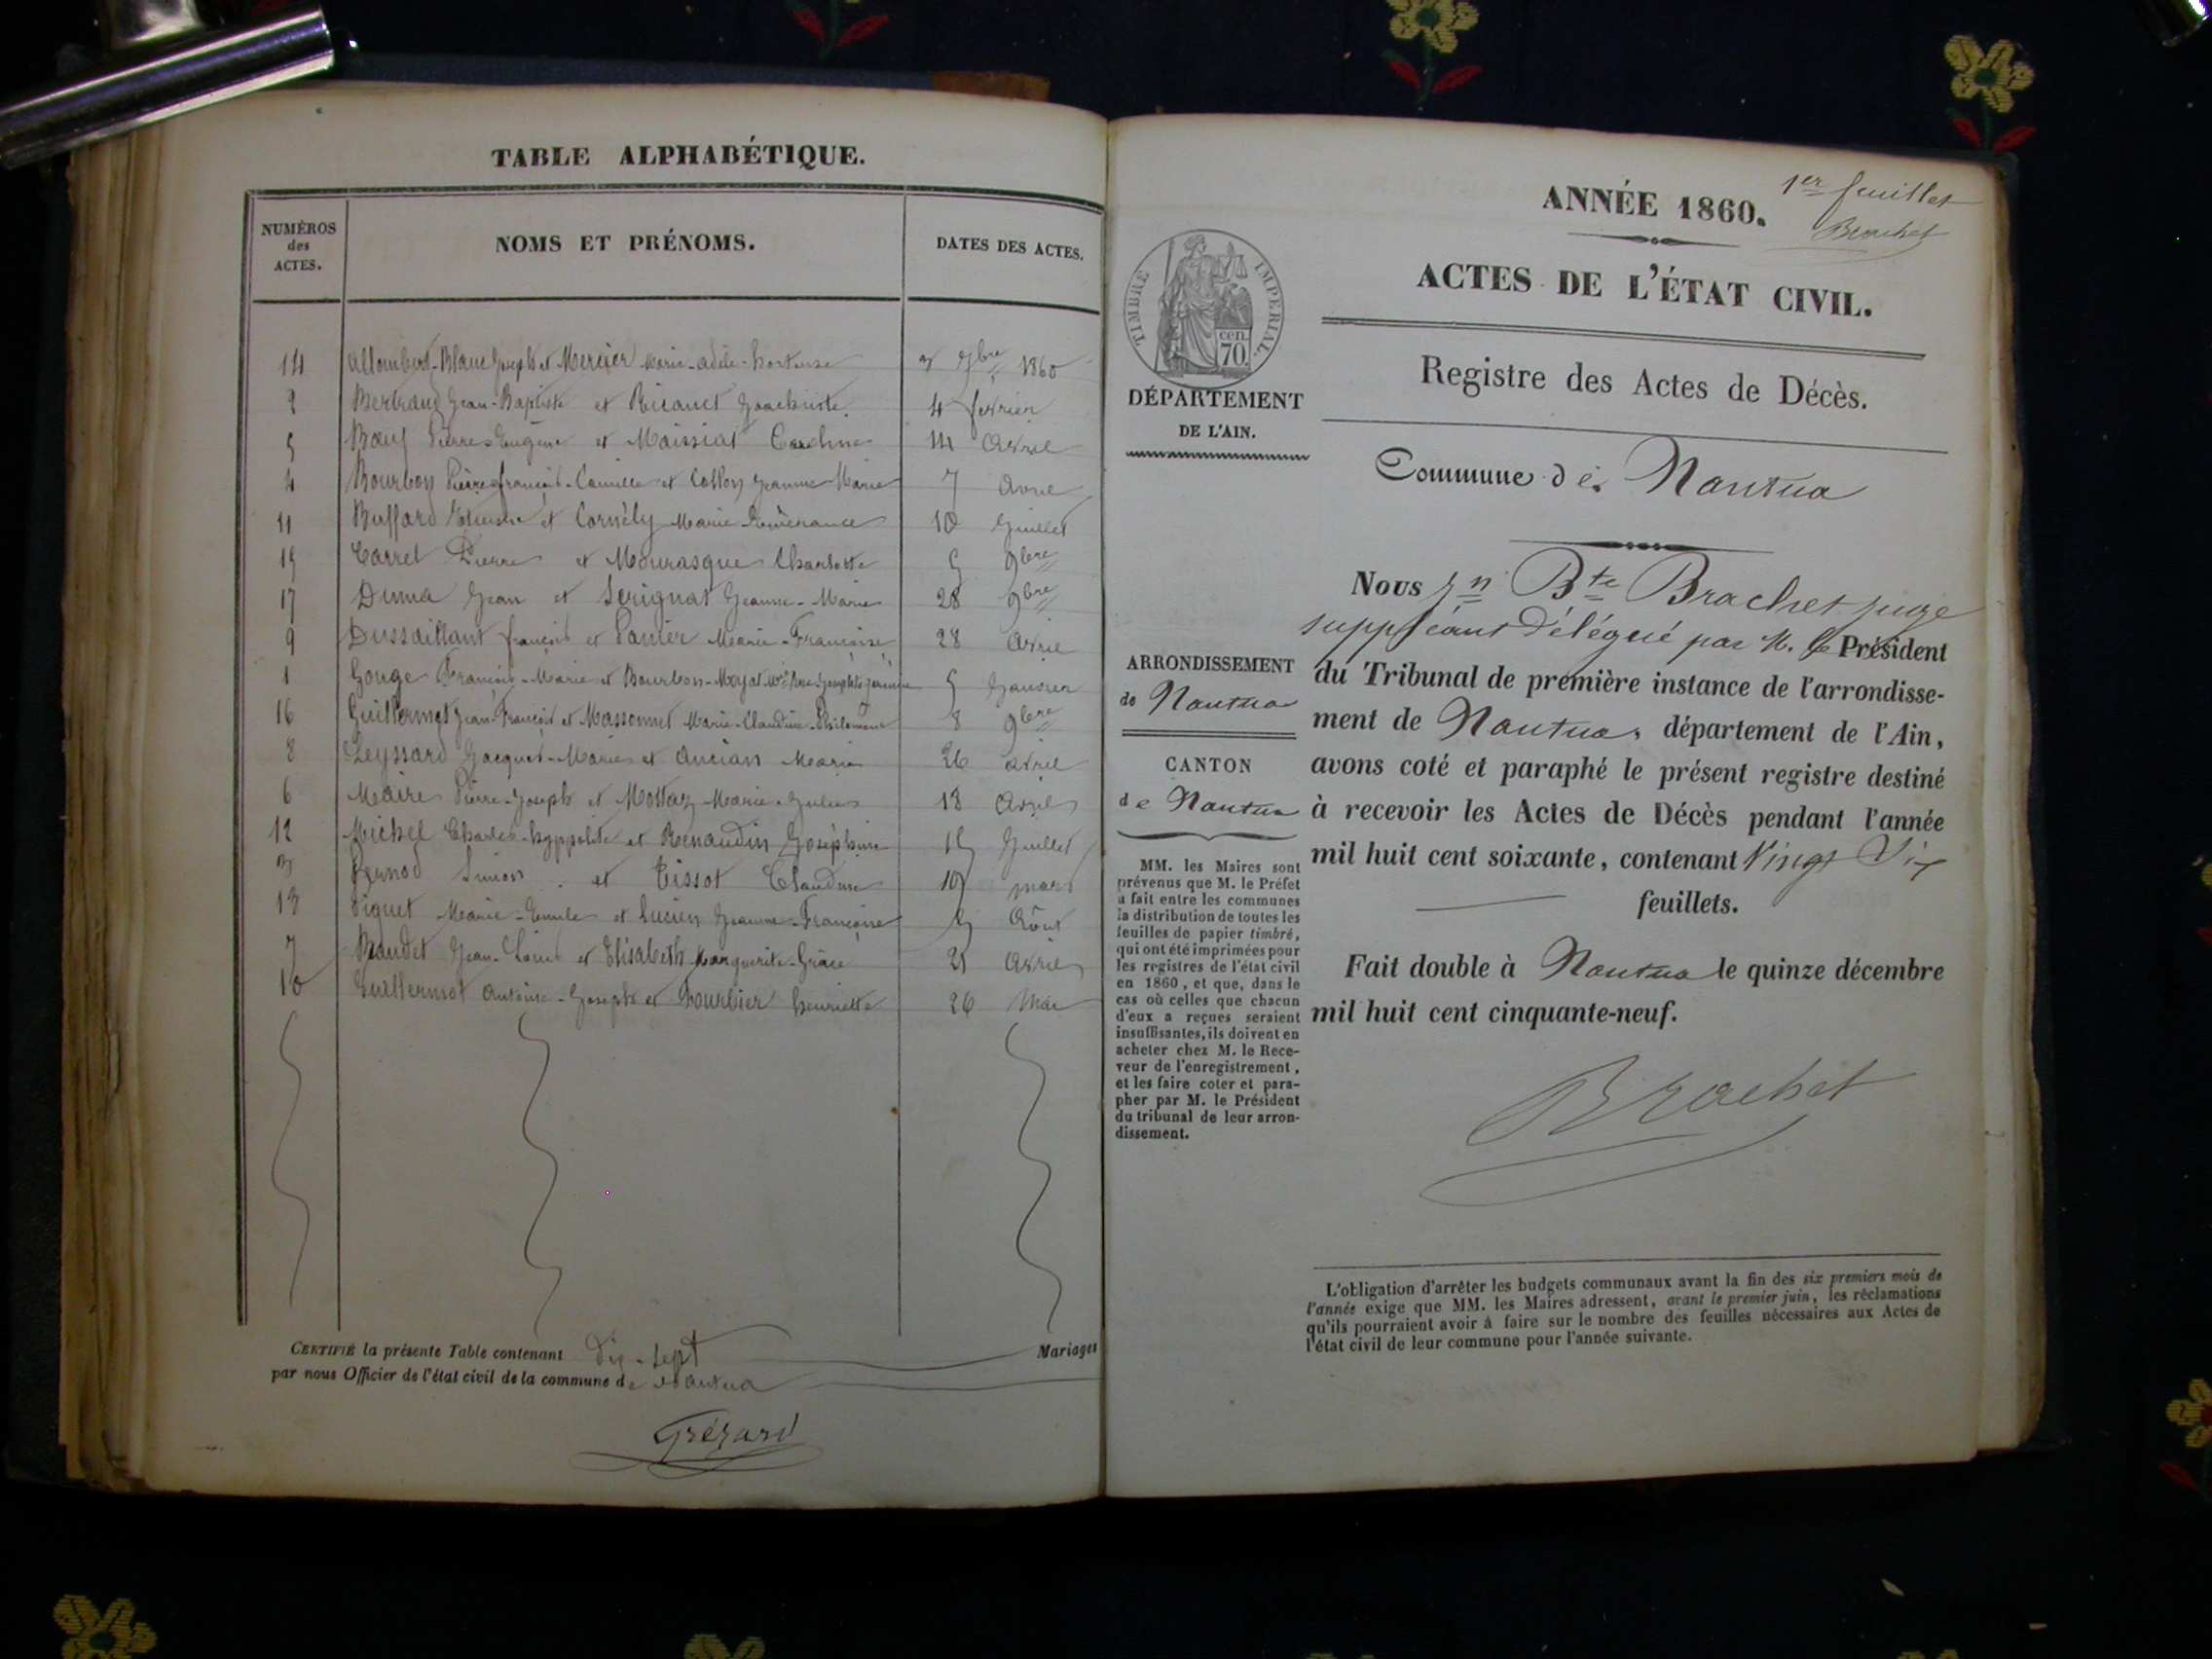 TABLE ALPHABÉTIQUE.
NUMÉROS
des
ACTES.
NOMS ET PRÉNOMS.
DATES DES ACTES.
14 Allombert-Blanc Joseph et Mercier Marie-Adèle-hortense 3 7bre 1860
2 Bertrand Jean-Baptiste et 4 février
5 Bœuf Pierre-Eugène et Maissiat Caroline 14 Avril
4 Bourbon Pierre françois-Camille et Collon Jeanne-Marie 7 Avril
11 Buffard et Cornély Marie 10 Juillet
15 Carrel Pierre et Mourasque Charlotte 5 9bre
17 Duma Jean et Serignat Jeanne-Marie 28 9bre
9 Dussaillant françois et Panier Marie-Françoise 28 Avril
1 Gouge François-Marie et Bourbon-Moyat 5 Janvier
16 Guillermet Jean-François et Massonnet Marie-Claudine-Philomène 8 9bre
8 Leyssard Jacques-Marie et Ancian Marie 26 avril
6 Maire Pierre-Joseph et Mottaz Marie-Julie 18 Avril
12 Michel Charles-hyppolite et Renaudin Joséphine 15 Juillet
3 Pernod Simon et Tissot Claudine 10 mars
13 Piguet Marie-Emile et Lucien Jeanne-Françoise 9 Août
7 Jean-Louis et Elisabeth Marguerite-Grâce 21 Avril
10 Guillermot Antoine-Joseph et Bourbier henriette 26 Mai
CERTIFIÉ la présente Table contenant dix-sept Mariages
par nous Officier de l'état civil de la commune de Nantua
Grézard
1er feuillet
Brachet
ANNÉE 1860.
TIMBRE IMPERIAL.
cen.
70
ACTES DE L'ÉTAT CIVIL.
Registre des Actes de Décès.
DÉPARTEMENT
DE L'AIN.
Commune de Nantua
Nous Jn Bte Brachet juge
suppléant délégué par M. le Président
du Tribunal de première instance de l'arrondisse-
ment de Nantua, département de l'Ain,
avons coté et paraphé le présent registre destiné
à recevoir les Actes de Décès pendant l'année
mil huit cent soixante, contenant Vingt Six
feuillets.
Fait double à Nantua le quinze décembre
mil huit cent cinquante-neuf.
Brachet
ARRONDISSEMENT
de Nantua
CANTON
de Nantua
MM. les Maires sont
prévenus que M. le Préfet
a fait entre les communes
la distribution de toutes les
feuilles de papier timbré,
qui ont été imprimées pour
les registres de l'état civil
en 1860, et que, dans le
cas où celles que chacun
d'eux a reçues seraient
insuffisantes, ils doivent en
acheter chez M. le Rece-
veur de l'enregistrement,
et les faire coter et para-
pher par M. le Président
du tribunal de leur arron-
dissement.
L'obligation d'arrêter les budgets communaux avant la fin des six premiers mois de
l'année exige que MM. les Maires adressent, avant le premier juin, les réclamations
qu'ils pourraient avoir à faire sur le nombre des feuilles nécessaires aux Actes de
l'état civil de leur commune pour l'année suivante.